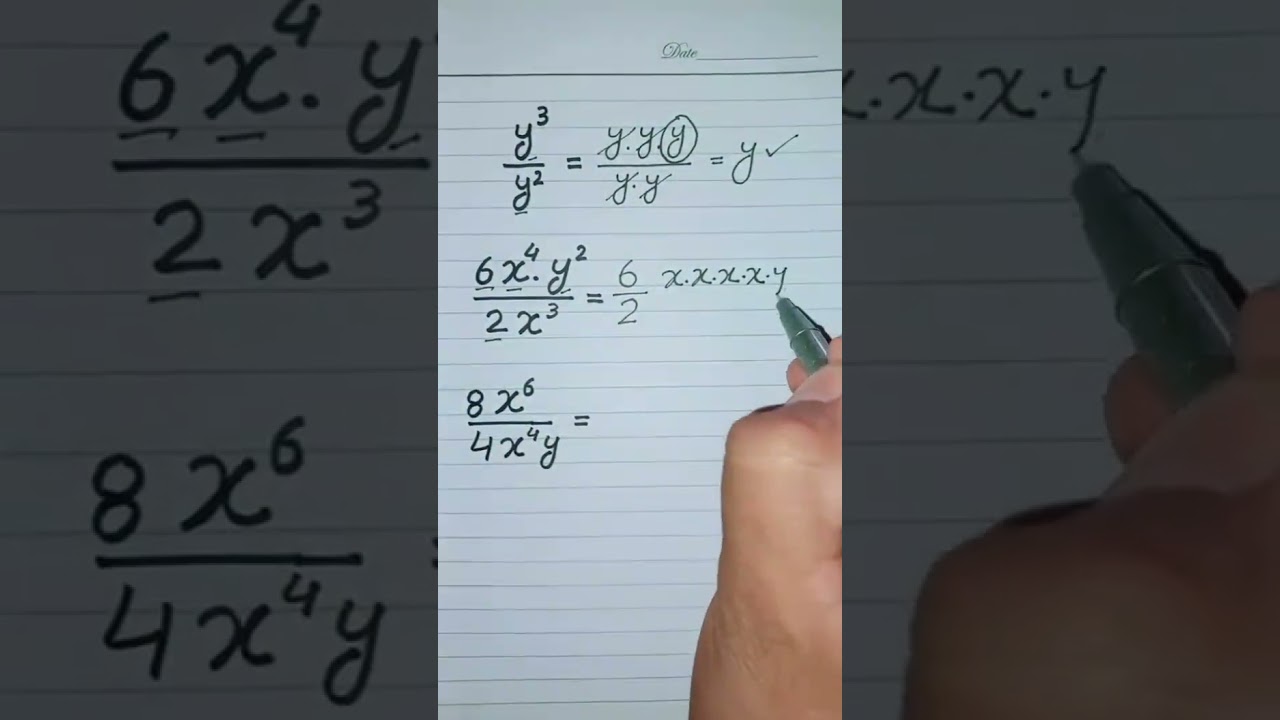 Date
y³/y² = y.y.y/y.y = y ✓
6x⁴.y²/2x³ = 6/2 x.x.x.x.y
8x⁶/4x⁴y =